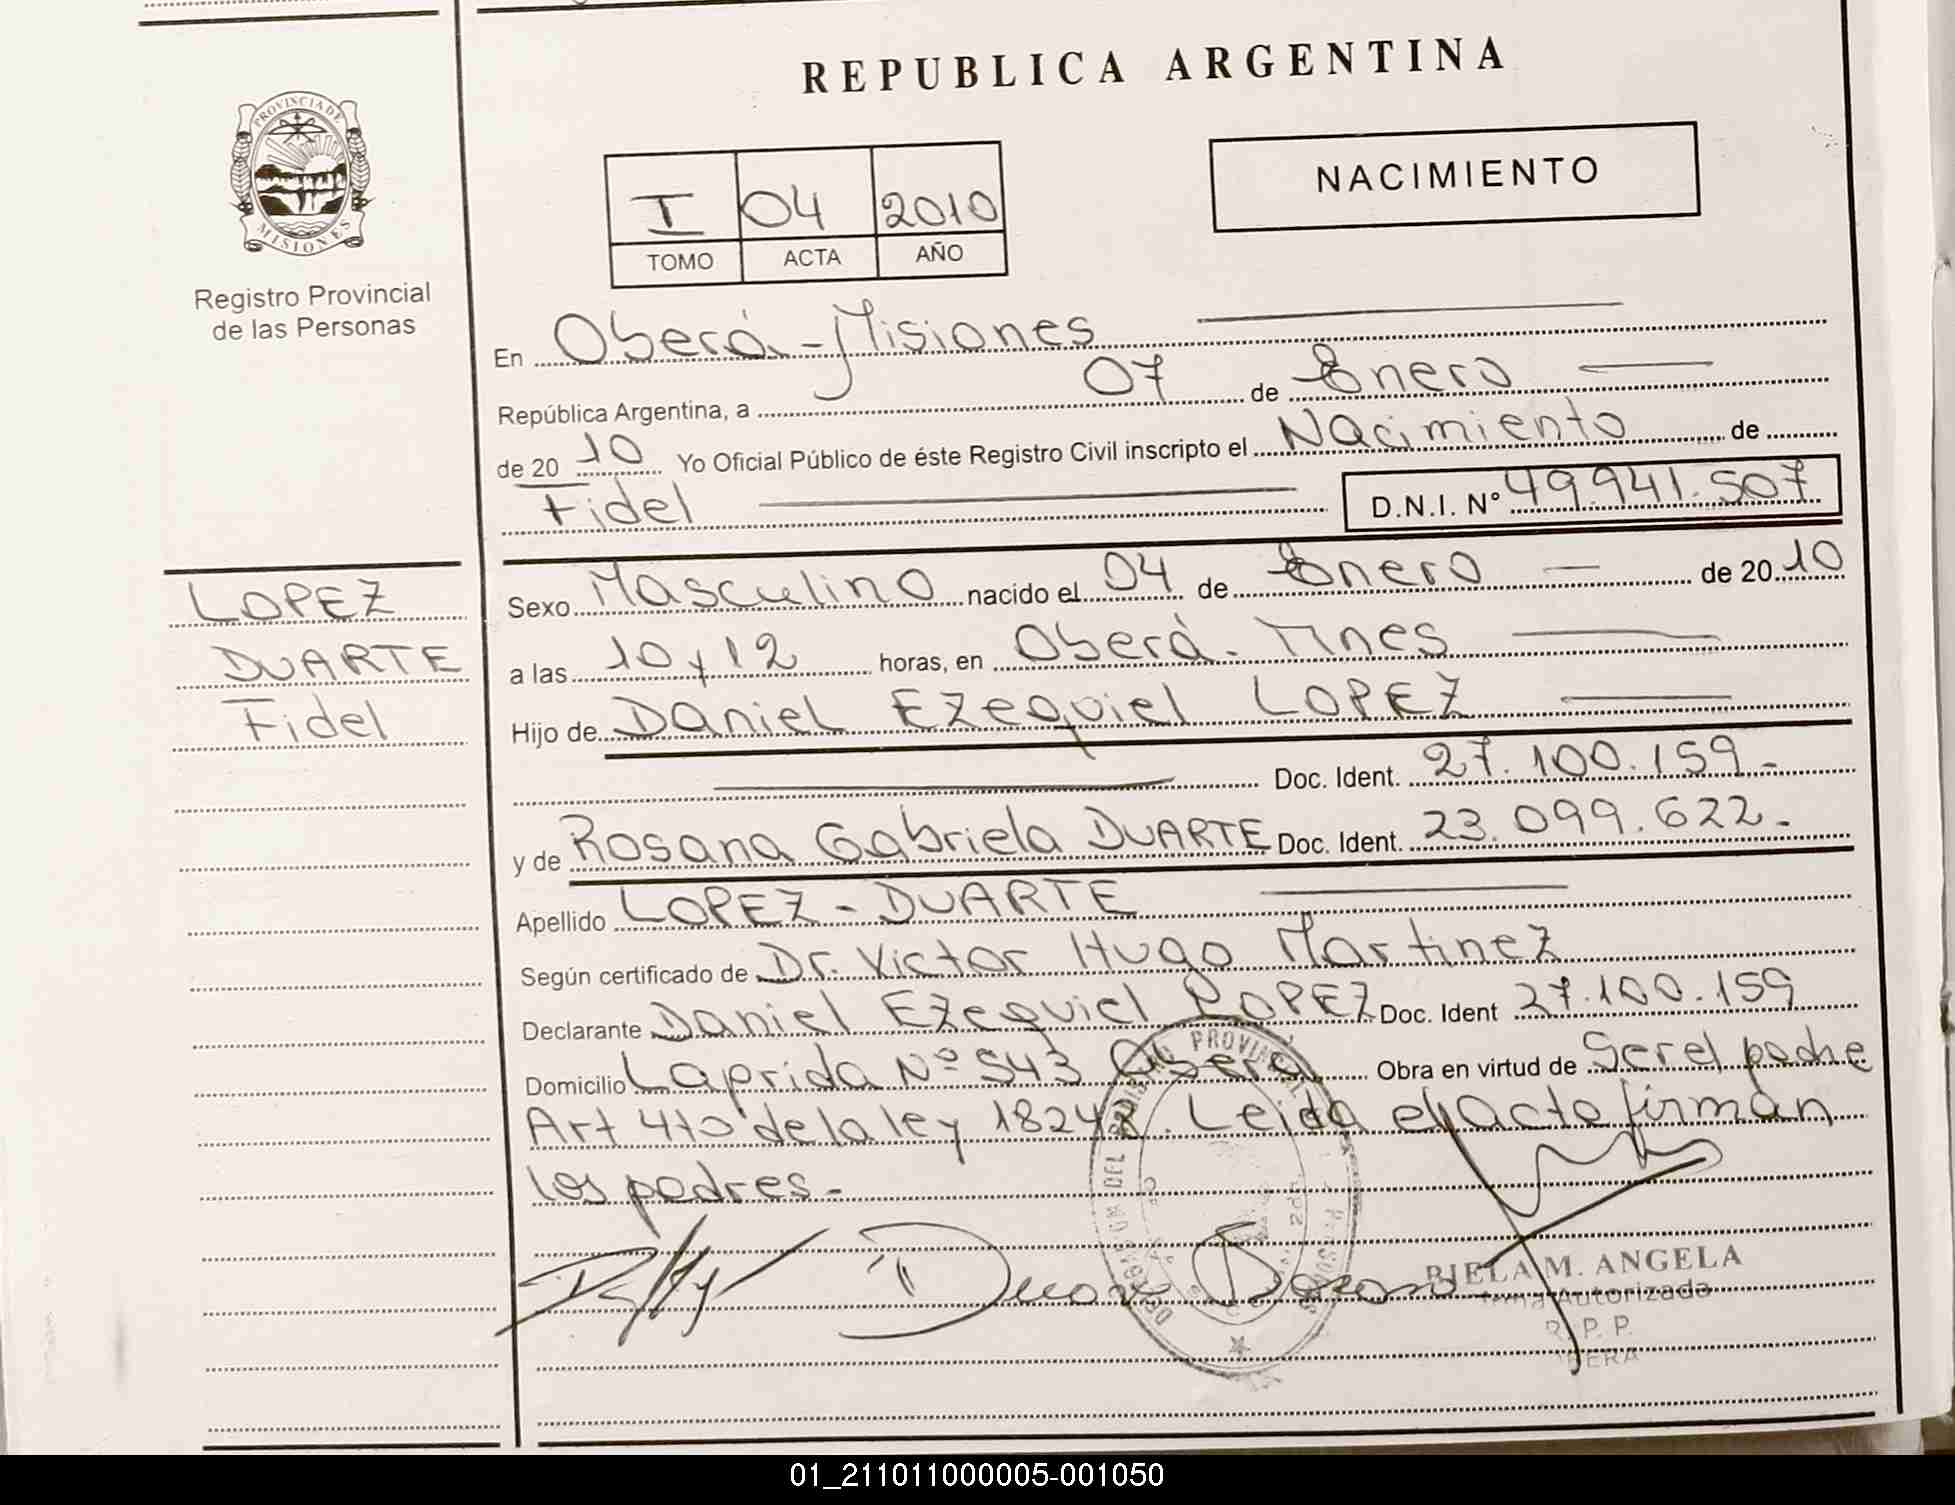 REPUBLICA ARGENTINA
PROVINCIA DE MISIONES
Registro Provincial
de las Personas
NACIMIENTO
I 04 2010
TOMO ACTA AÑO
En Oberá - Misiones
República Argentina, a 07 de Enero
de 20 10 Yo Oficial Público de éste Registro Civil inscripto el Nacimiento de
Fidel D.N.I. N° 49.941.507
LOPEZ
DUARTE
Fidel
Sexo Masculino nacido el 04 de Enero de 20 10
a las 10 y 12 horas, en Oberá. Mnes
Hijo de Daniel Ezequiel LOPEZ
Doc. Ident. 27.100.159.-
y de Rosana Gabriela DUARTE Doc. Ident. 23.099.622.-
Apellido LOPEZ - DUARTE
Según certificado de Dr. Victor Hugo Martinez
Declarante Daniel Ezequiel LOPEZ Doc. Ident 27.100.159
Domicilio Laprida Nº 543 Oberá Obra en virtud de Ser el padre
Art 4to de la ley 18248. Leida el acta firman
los padres.-
Duarte Rosana
PIELA M. ANGELA
Firma Autorizada
R. P. P.
OBERA
01_211011000005-001050